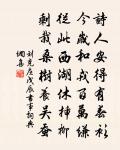 詩人安得有春衫
今歲和戎百萬縑
從此西湖休插柳
剩栽桑樹養吳蠶
劉克莊戊辰書事詞典
網集